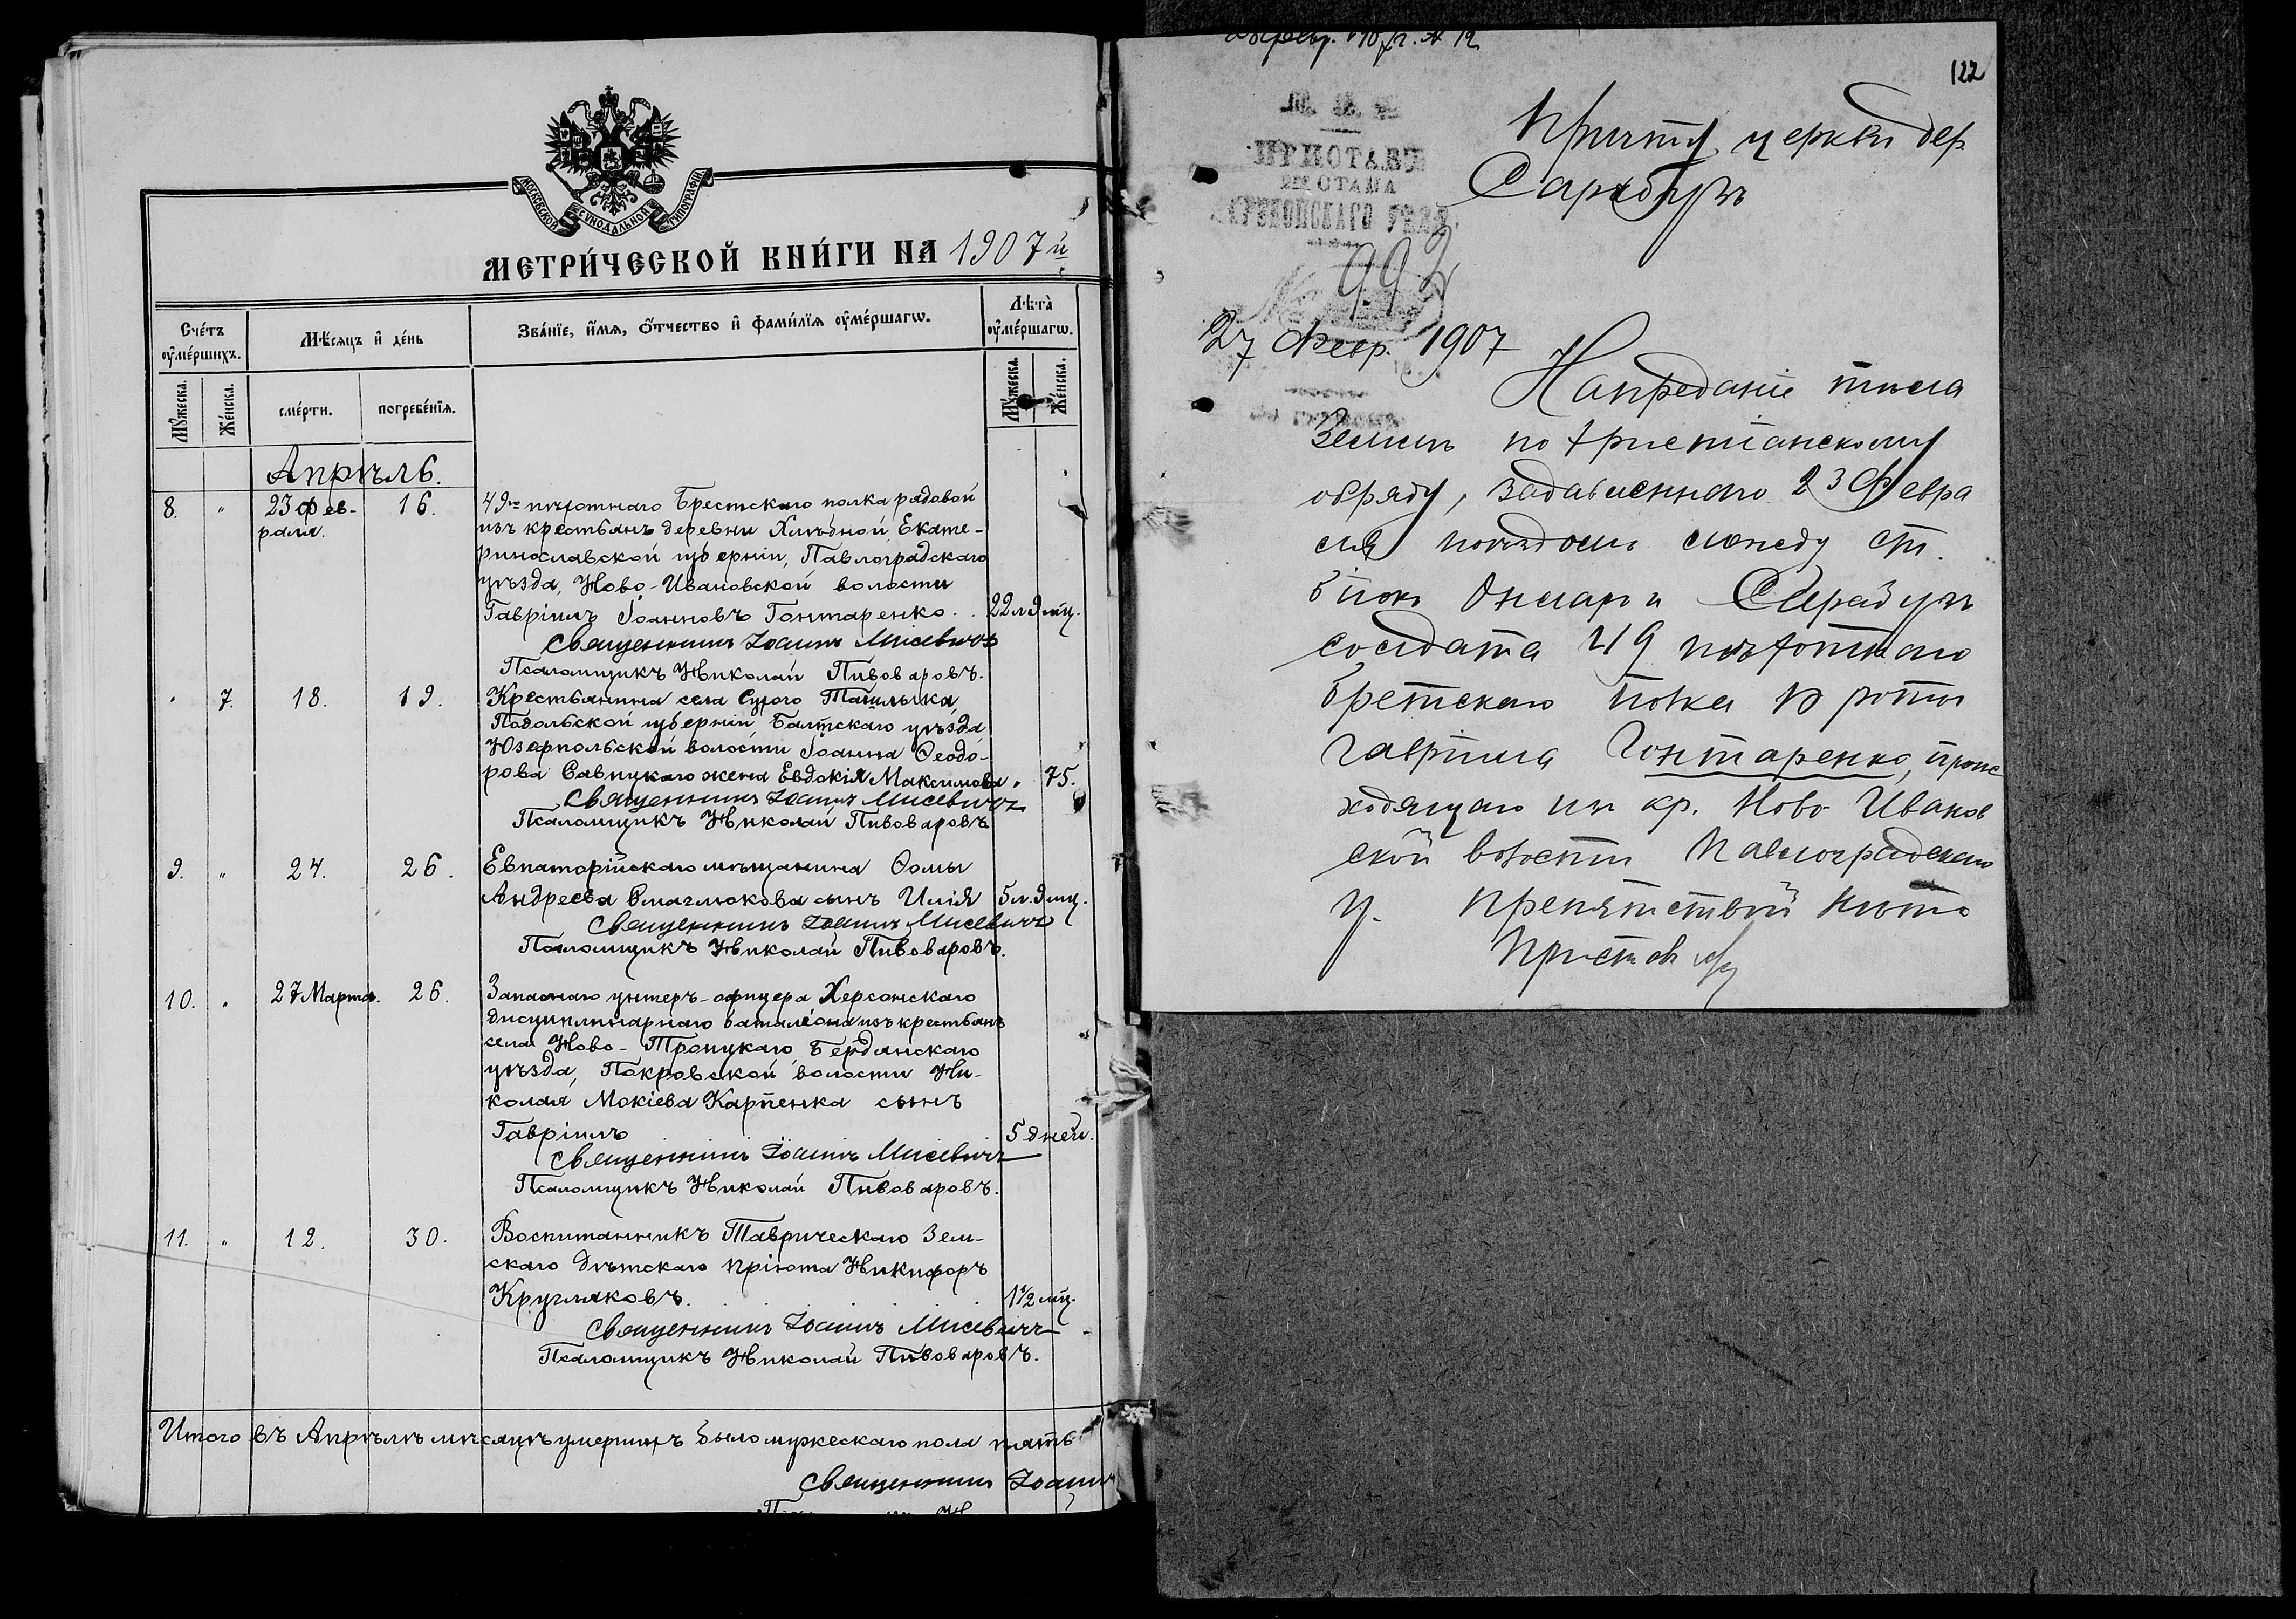 МОСКОВСКОЙ СѴНОДАЛЬНОЙ ТИПОГРАФІИ
МЕТРИ́ЧЕСКОЙ КНИ́ГИ НА 1907й
Счётъ ѹме́ршихъ.
Мѣ́сяцъ и҆ де́нь
Зва́нїе, и҆́мѧ, ѻ҆́тчество и҆ фами́лїѧ ѹ҆ме́ршагѡ.
Лѣта̀ ѹ҆ме́ршагѡ.
Мꙋ́жеска.
Же́нска.
сме́рти.
погребе́нїѧ.
Мꙋ́жеска.
Же́нска.
Апрѣль.
8. " 23 фев- 16. 49го пѣхотнаго Брестскаго полка рядовой
раля. изъ крестьянъ деревни Хлѣбной, Екате-
ринославской губерніи, Павлоградскаго
уѣзда, Ново-Ивановской волости
Гавріилъ Іоанновъ Гонтаренко. 22 л 9 мц.
Священникъ Іоаннъ Мисевичъ
Псаломщикъ Николай Пивоваровъ.
" 7. 18. 19. Крестьянина села Сухого Ташлыка,
Подольской губерніи, Балтскаго уѣзда,
Юзефпольской волости Іоанна Ѳеодо-
рова Савицкаго жена Евдокія Максимова " 75.
Священникъ Іоаннъ Мисевичъ
Псаломщикъ Николай Пивоваровъ
9. " 24. 26. Евпаторійскаго мѣщанина Ѳомы
Андреева Смаглюкова сынъ Илія 5 л. 9 мц.
Священникъ Іоаннъ Мисевичъ
Псаломщикъ Николай Пивоваровъ.
10. " 27 Марта. 26. Запаснаго унтеръ-офицера Херсонскаго
дисциплинарнаго баталіона изъ крестьянъ
села Ново-Троицкаго, Бердянскаго
уѣзда, Покровской волости Ни-
колая Мокіева Карпенка сынъ
Гавріилъ 5 дней.
Священникъ Іоаннъ Мисевичъ
Псаломщикъ Николай Пивоваровъ.
11. " 12. 30. Воспитанникъ Таврическаго Зем-
скаго дѣтскаго пріюта Никифоръ
Кругляковъ. 1½ мц.
Священникъ Іоаннъ Мисевичъ
Псаломщикъ Николай Пивоваровъ.
Итого въ Апрѣлѣ мѣсяцѣ умершихъ было мужескаго пола пять
Священникъ Іоаннъ
122
Причту церкви дер.
Сарабузъ
М. В. Д.
ПРИСТАВЪ
2го СТАНА
993
27 Февр. 1907
На преданіе тѣла
землѣ по христіанскому
обряду, задавленнаго 23 Февра
ля поѣздомъ между ст.
Біюкъ Онларъ и Сарабузъ
солдата 49 пѣхотнаго
Брестскаго полка 10 роты
Гавріила Гонтаренко, проис
ходящаго изъ кр. Ново Иванов
ской волости Павлоградскаго
у. препятствій нѣтъ
Приставъ